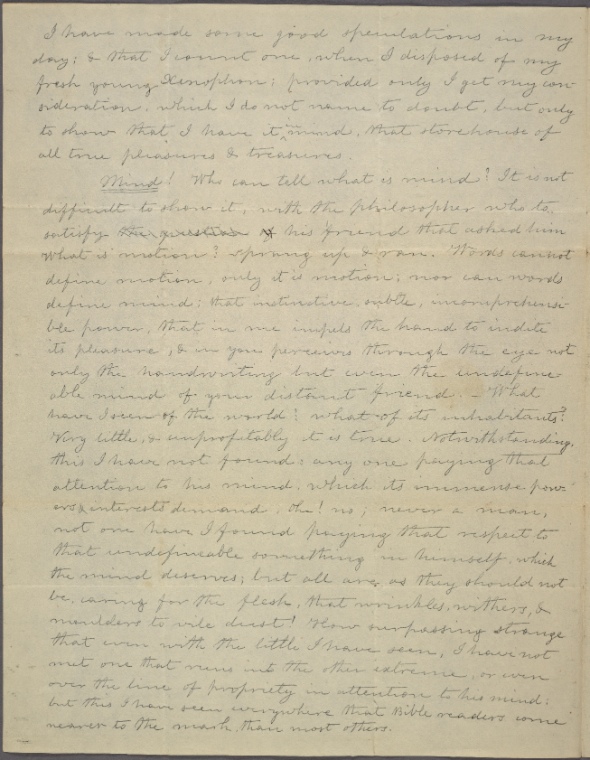 I have made some good speculations in my
day; & that I count one, when I disposed of my
fresh young Xenophon; provided only I get my con
sideration, which I do not name to doubt, but only
to show that I have it in mind, that storehouse of
all true pleasures & treasures.
Mind! Who can tell what is mind? It is not
difficult to show it, with the philosopher who to
satisfy the question of his friend that asked him
what is motion? sprung up & ran. Words cannot
define motion, only it is motion; nor can words
define mind; that instinctive, subtle, incomprehensi
ble power, that in me impels the hand to indite
its pleasure, & in you perceives through the eye not
only the handwriting but even the undefine
able mind of your distant friend. – What
have I seen of the world? what of its inhabitants?
Very little, & unprofitably it is true. Notwithstanding,
this I have not found: any one paying that
attention to his mind, which its immense pow
ers & interests demand. Oh! no; never a man,
not one have I found paying that respect to
that undefineable something in himself, which
the mind deserves; but all are, as they should not
be, caring for the flesh, that wrinkles, withers, &
moulders to vile dust! How surpassing strange
that even with the little I have seen, I have not
met one that runs into the other extreme, or even
over the line of propriety in attention to his mind;
but this I have seen everywhere that Bible readers come
nearer to the mark, than most others.